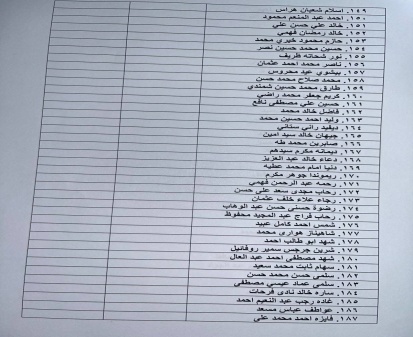 ١٤٩. اسلام شعبان هراس
١٥٠. احمد عبد المنعم محمود
١٥١. خالد علي حسن علي
١٥٢. خالد رمضان فهمي
١٥٣. حازم محمود خيري محمد
١٥٤. حسين محمد حسين نصر
١٥٥. نور شحاته ظريف
١٥٦. ناصر محمد احمد عثمان
١٥٧. بيشوي عيد محروس
١٥٨. محمد صلاح محمد حسن
١٥٩. طارق محمد حسين شمندي
١٦٠. كريم جعفر محمد راضي
١٦١. حسين علي مصطفى نافع
١٦٢. فاضل خالد محمد
١٦٣. وليد احمد حسين محمد
١٦٤. ديفيد راني
١٦٥. جيهان خالد سيد امين
١٦٦. صابرين محمد طه
١٦٧. ديمانه مكرم سيدهم
١٦٨. دعاء خالد عبد العزيز
١٦٩. دنيا امام محمد عطيه
١٧٠. ريموندا جوهر مكرم
١٧١. رحمه عبد الرحمن فهمي
١٧٢. رحاب مجدى سعد علي حسن
١٧٣. رجاء علاء خلف عثمان
١٧٤. رضوة حسني حسن عبد الوهاب
١٧٥. رحاب فراج عبد المجيد محفوظ
١٧٦. شمس احمد كامل عبيد
١٧٧. شاهيناز هواري محمد
١٧٨. شهد ابو طالب احمد
١٧٩. شرين جرجس سمير روفائيل
١٨٠. شهد مصطفى احمد عبد العال
١٨١. سهام ثابت محمد سعيد
١٨٢. سلمى حسن محمد حسن
١٨٣. سلمى عماد عيسى مصطفى
١٨٤. ساره خالد نادى فرحات
١٨٥. غاده رجب عبد النعيم احمد
١٨٦. عواطف عباس مسعد
١٨٧. فايزه احمد محمد علي